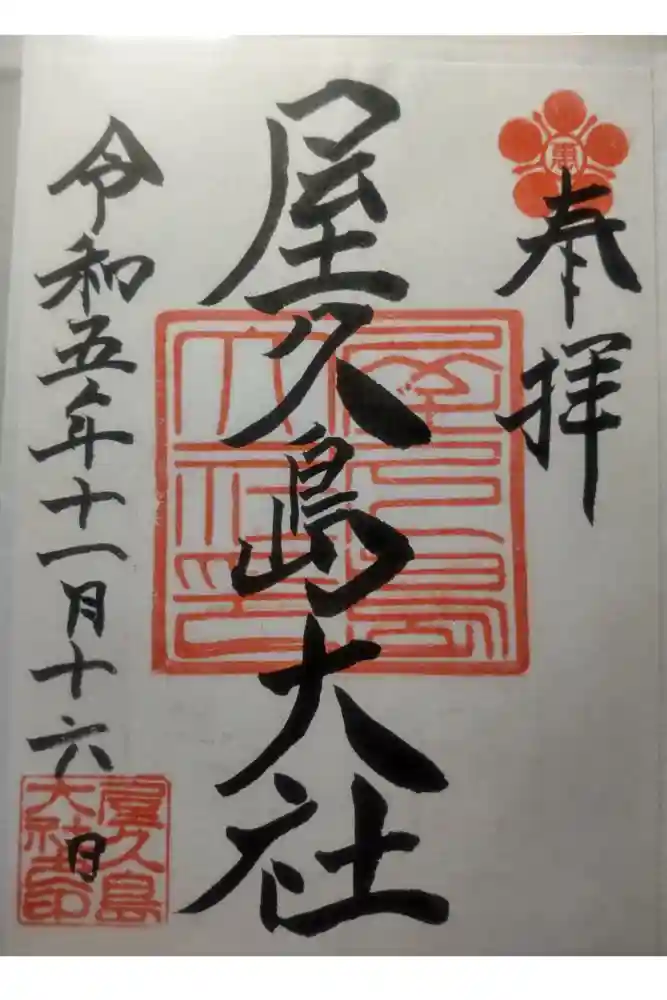 奉拝
屋久島大社
令和五年十一月十六日
屋久島
大社之印